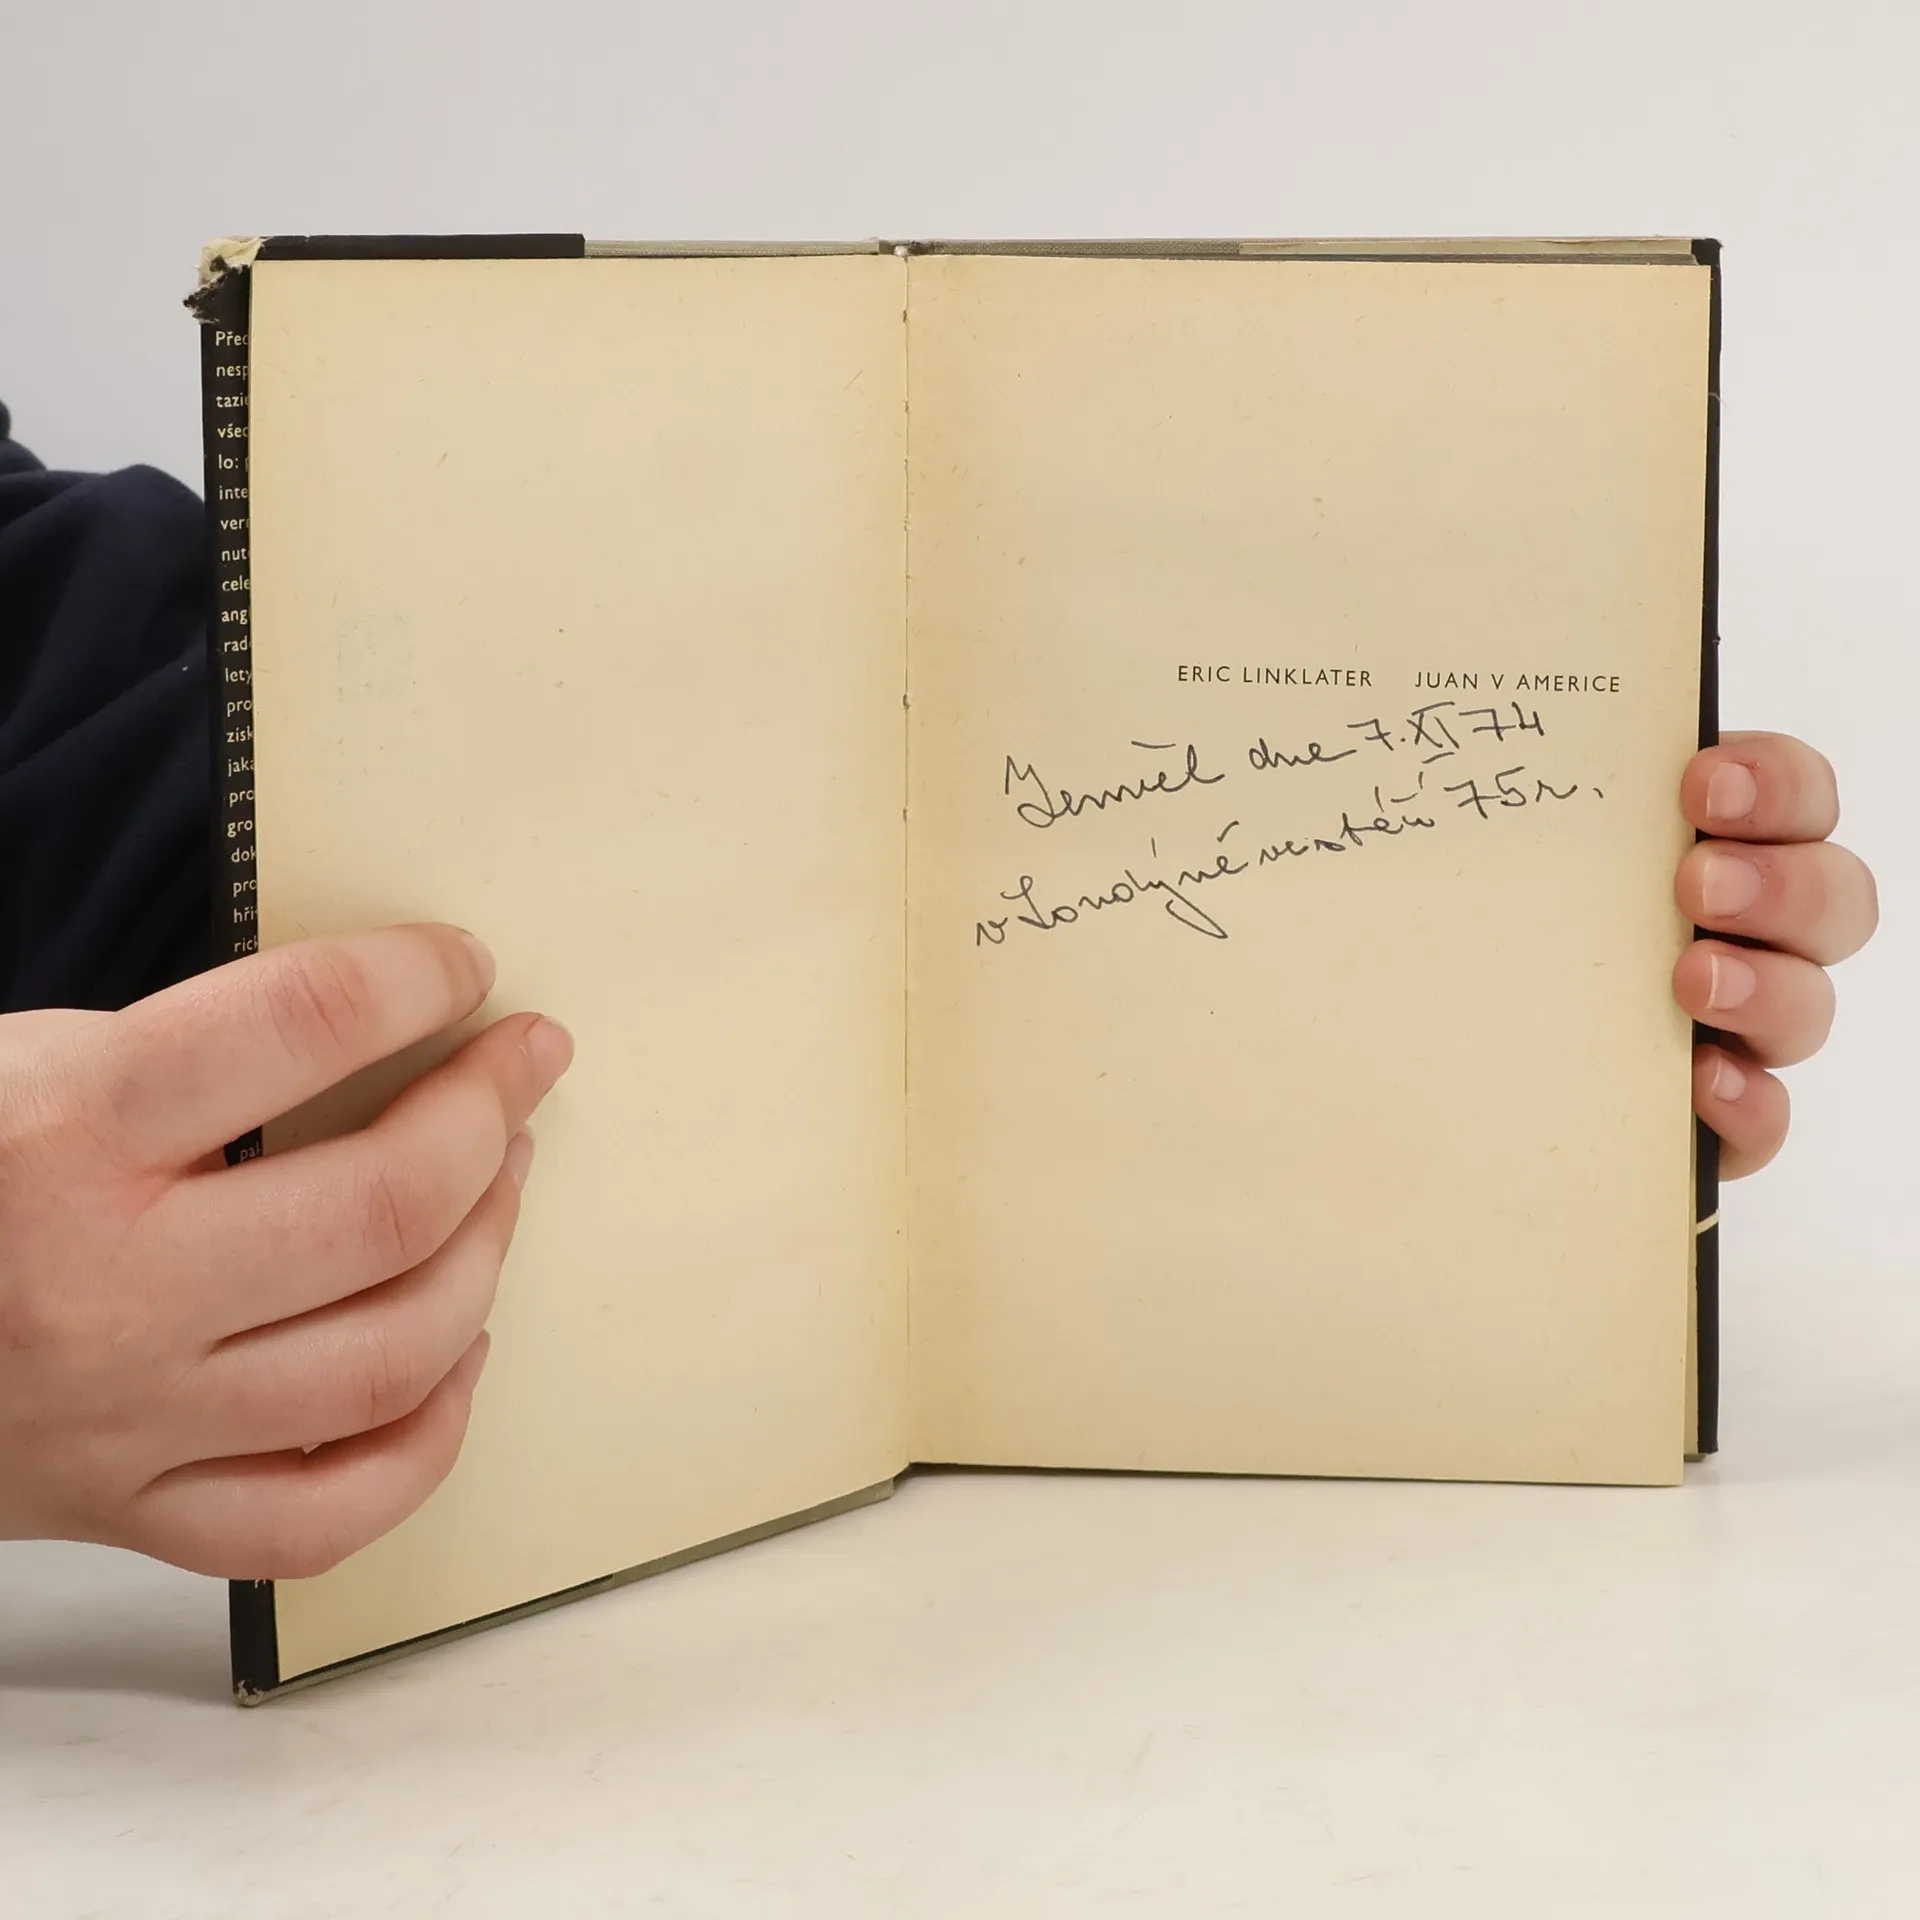 Přec
nesp
tazie
všec
lo:
inte
veri
nut
cele
ang
rad
lety
pro
získ
jaka
pro
gro
dok
pro
hři
rick
pak
ERIC LINKLATER JUAN V AMERICE
Zemřel dne 7.XI 74
v Londýně ve stáří 75r.